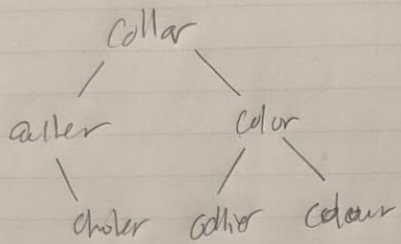 Collar
caller color
choler collier colour